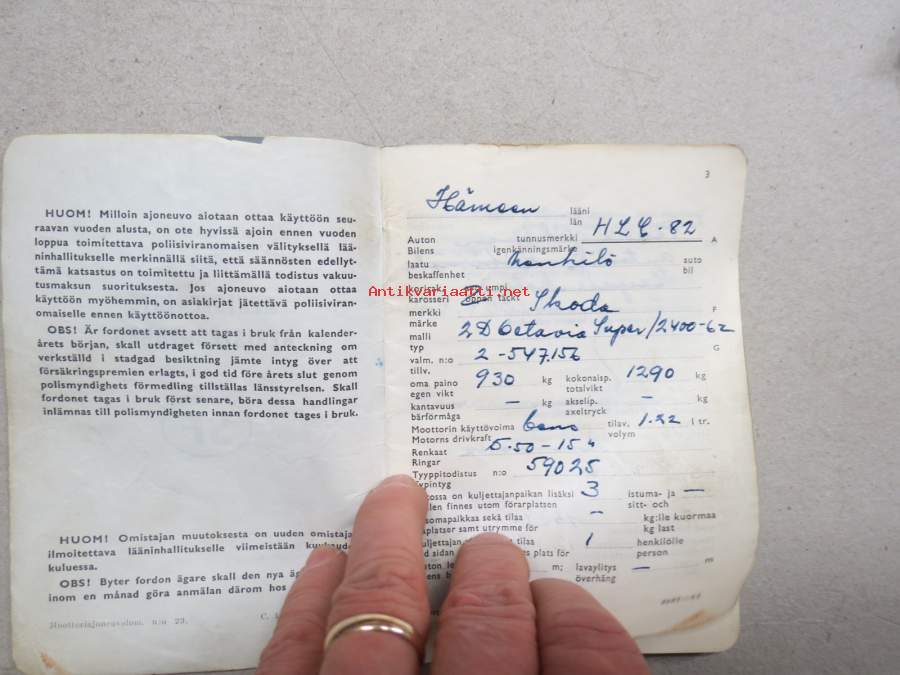 HUOM! Milloin ajoneuvo aiotaan ottaa käyttöön seu-
raavan vuoden alusta, on ote hyvissä ajoin ennen vuoden
loppua toimitettava poliisiviranomaisen välityksellä lää-
ninhallitukselle merkinnällä siitä, että säännösten edellyt-
tämä katsastus on toimitettu ja liittämällä todistus vakuu-
tusmaksun suorituksesta. Jos ajoneuvo aiotaan ottaa
käyttöön myöhemmin, on asiakirjat jätettävä poliisiviran-
omaiselle ennen käyttöönottoa.
OBS! Är fordonet avsett att tagas i bruk från kalender-
årets början, skall utdraget försett med anteckning om
verkställd i stadgad besiktning jämte intyg över att
försäkringspremien erlagts, i god tid före årets slut genom
polismyndighets förmedling tillställas länsstyrelsen. Skall
fordonet tagas i bruk först senare, böra dessa handlingar
inlämnas till polismyndigheten innan fordonet tages i bruk.
HUOM! Omistajan muutoksesta on uuden omistaja
ilmoitettava lääninhallitukselle viimeistään
kuluessa.
OBS! Byter fordon ägare skall den nya
inom en månad göra anmälan därom hos
Moottoriajoneuvolom. n:o 23.
3
Hämeen lääni
län
Auton tunnusmerkki HLC-82 A
Bilens igenkänningsmärke
laatu Henkilö auto
beskaffenhet bil
korirak. umpi
karosseri öppen täckt
merkki Skoda F
märke
malli 2D Octavia Super/2400-62
typ G
valm. n:o 2-547.156
tillv.
oma paino 930 kg kokonaisp. 1290 kg
egen vikt totalvikt
kantavuus – kg akselip. – kg
bärförmåga axeltryck
Moottorin käyttövoima Bens tilav. 1.22 l tr.
Motorns drivkraft volym
Renkaat 5.50-15"
Ringar
Tyyppitodistus n:o 59025
Typintyg
ossa on kuljettajanpaikan lisäksi 3 istuma- ja –
len finnes utom förarplatsen sitt- och
somapaikkaa sekä tilaa – kg:lle kuormaa
platser samt utrymme för kg last
uljettajan tilaa 1 henkilölle
d sidan plats för person
uton m; lavaylitys – m
ens överhäng
Antikvariaatti.net